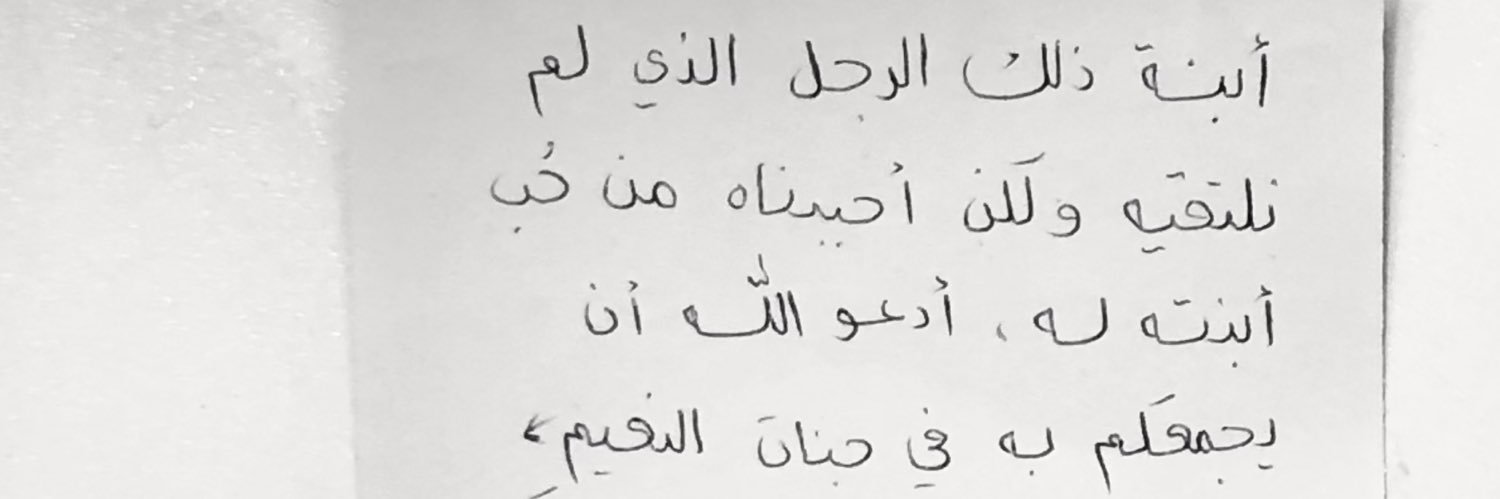 أبنة ذلك الرجل الذي لم
نلتقيه ولكن أحببناه من حُب
أبنته له ، أدعو اللّٰه أن
يجمعكم به في جنات النعيم ،